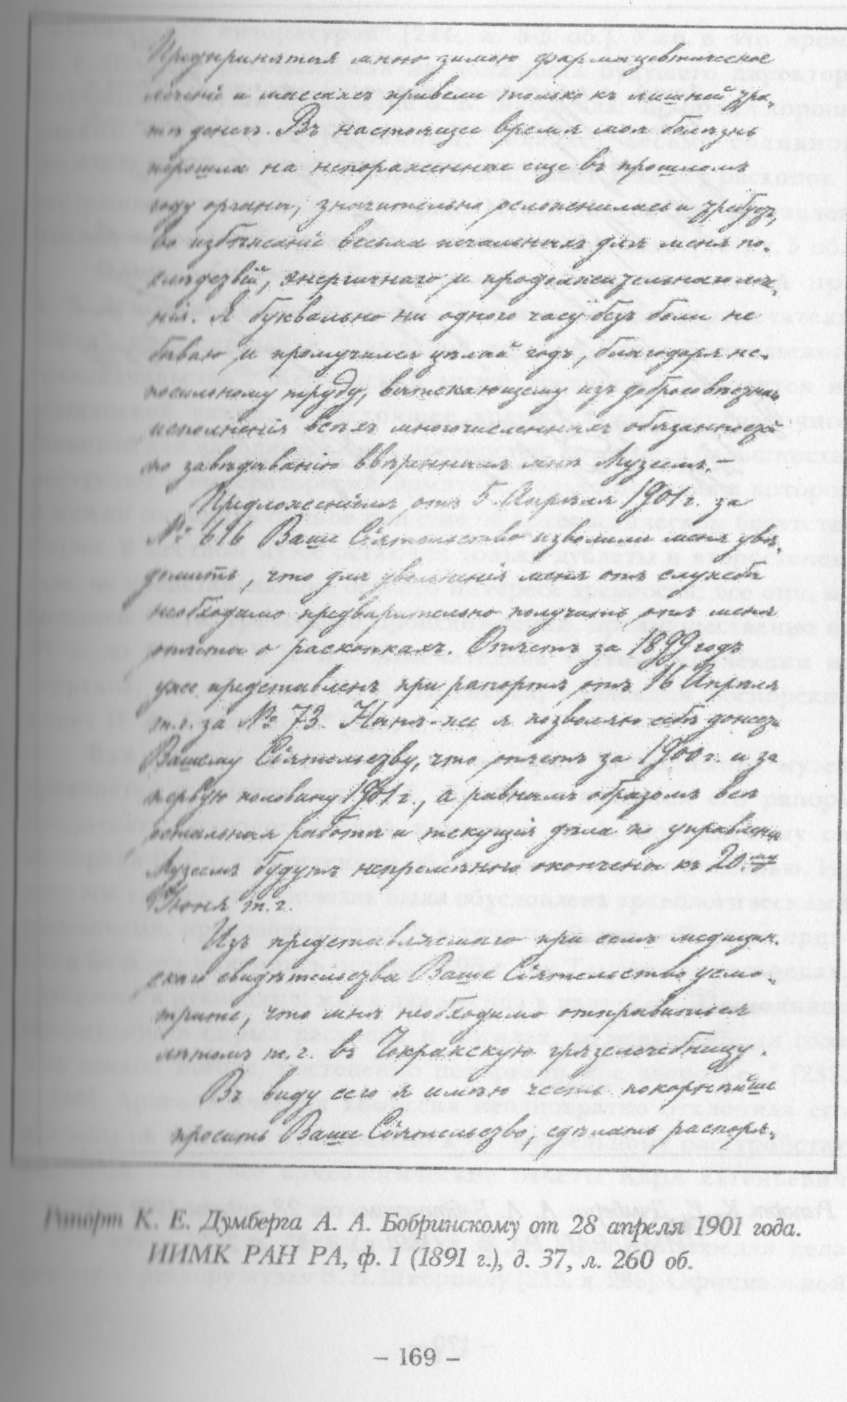 Предпринятыя мною зимою фармацевтическое
леченіе и массажъ привели только къ лишней тра-
тѣ денегъ. Въ настоящее время моя болѣзнь
перешла на непораженные еще въ прошломъ
году органы, значительно осложнилась и требуетъ,
во избѣжаніе весьма печальныхъ для меня по-
слѣдствій, энергичнаго и продолжительнаго лѣче-
нія. Я буквально ни одного часу безъ боли не
бываю и промучился цѣлый годъ, благодаря не-
посильному труду, вытекающему изъ добросовѣстнаго
исполненія всѣхъ многочисленныхъ обязанностей
по завѣдыванію ввѣреннымъ мнѣ Музеемъ.
Предложеніемъ отъ 5 Апрѣля 1901 г. за
№ 616 Ваше Сіятельство изволили меня увѣ-
домить, что для увольненія меня отъ службы
необходимо предварительно получить отъ меня
отчеты о раскопкахъ. Отчетъ за 1899 годъ
уже представленъ при рапортѣ отъ 16 Апрѣля
т.г. за № 73. Нынѣ-же я позволяю себѣ донести
Вашему Сіятельству, что отчетъ за 1900 г. и за
первую половину 1901 г., а равнымъ образомъ всѣ
остальныя работы и текущія дѣла по управленію
Музеемъ будутъ непремѣнно окончены къ 20-му
Іюня т.г.
Изъ представляемаго при семъ медицин-
скаго свидѣтельства Ваше Сіятельство усмо-
трите, что мнѣ необходимо отправиться
лѣтомъ т.г. въ Чокракскую грязелечебницу.
Въ виду сего я имѣю честь покорнѣйше
просить Ваше Сіятельство, сдѣлать распоря-
Рапорт К. Е. Думберга А. А. Бобринскому от 28 апреля 1901 года.
ИИМК РАН РА, ф. 1 (1891 г.), д. 37, л. 260 об.
– 169 –